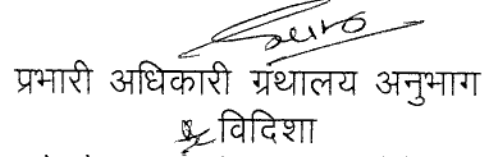 प्रभारी अधिकारी ग्रंथालय अनुभाग
विदिशा